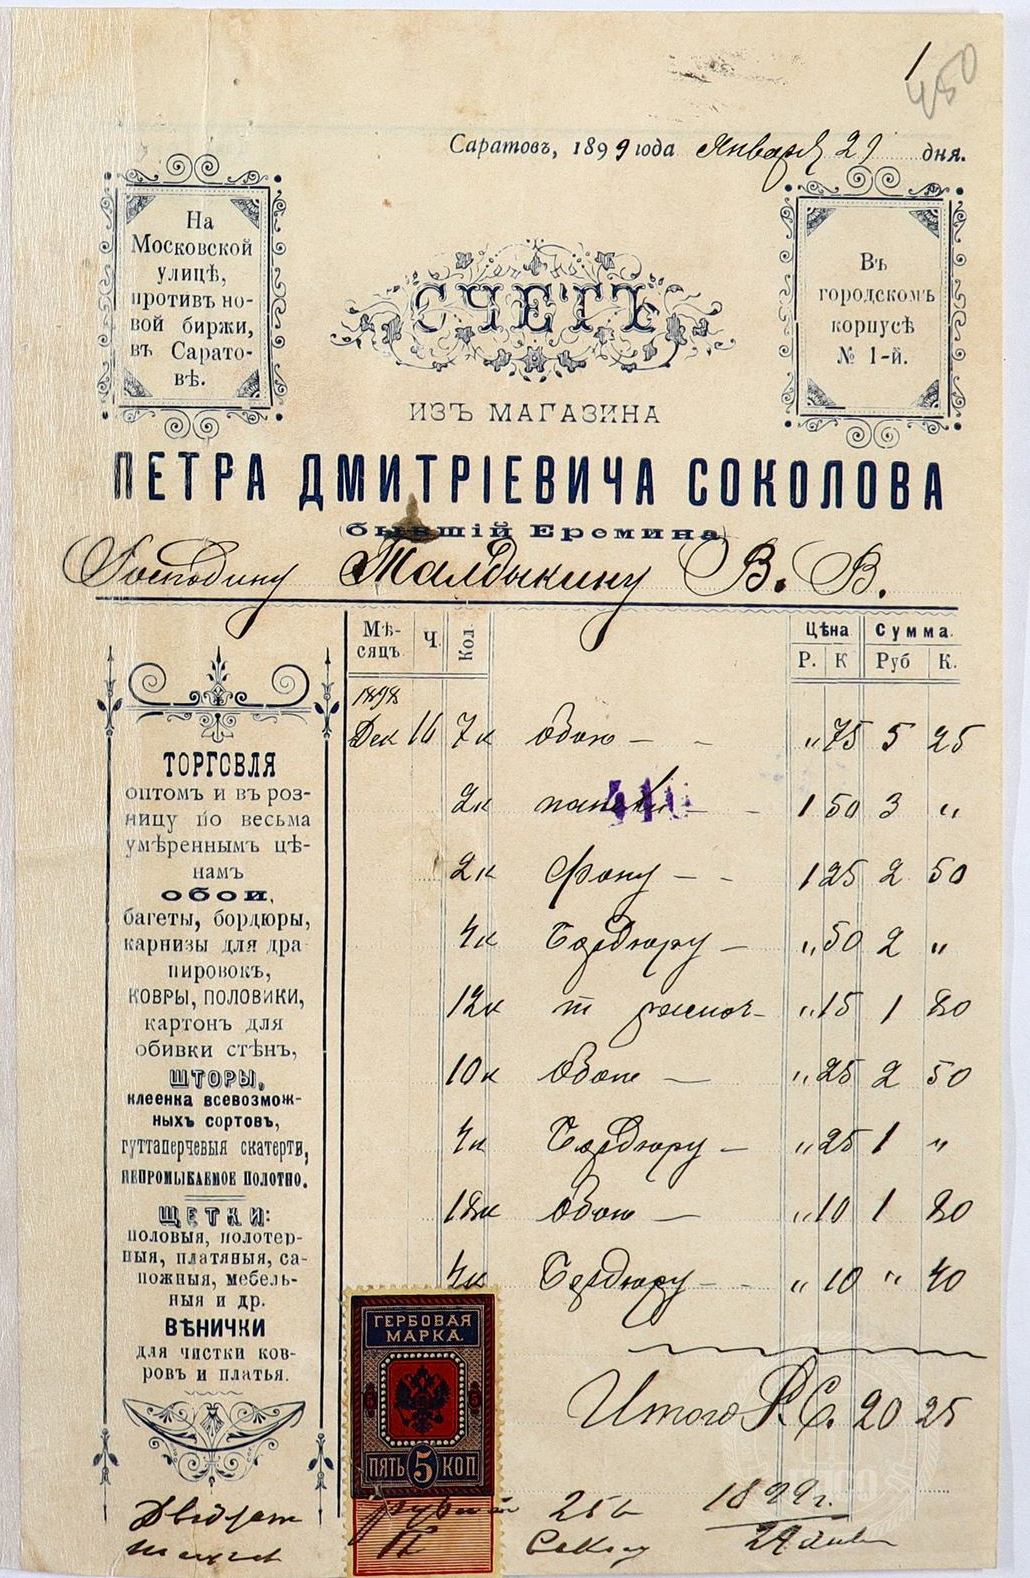 1
450
Саратовъ, 1899 года Января 29 дня.
На
Московской
улицѣ,
противъ но-
вой биржи,
въ Сарато-
вѣ.
СЧЕТЪ
Въ
городскомъ
корпусѣ
№ 1-й.
ИЗЪ МАГАЗИНА
ПЕТРА ДМИТРІЕВИЧА СОКОЛОВА
бывшій Еремина
Господину Талдыкину В. В.
Мѣ-
сяцъ Ч. Кол Цѣна Сумма.
Р. К Руб К.
1898
Дек 16 7к обою — - " 75 5 25
2к — - 1 50 3 "
2к фону — - 1 25 2 50
4к Бордюру — " 50 2 "
12к " 15 1 80
10к обою — " 25 2 50
4к Бордюру — " 25 1 "
18к обою — " 10 1 80
4к Бордюру — - " 10 " 40
Итого Р. С. 20 25
ТОРГОВЛЯ
оптомъ и въ роз-
ницу по весьма
умѣреннымъ цѣ-
намъ
ОБОИ,
багеты, бордюры,
карнизы для дра
пировокъ,
КОВРЫ, ПОЛОВИКИ,
картонъ для
обивки стѣнъ,
ШТОРЫ,
клеенка всевозмож-
ныхъ сортовъ,
гуттаперчевыя скатерти,
НЕПРОМЫКАЕМОЕ ПОЛОТНО.
ЩЕТКИ:
половыя, полотер-
ныя, платяныя, са-
пожныя, мебель-
ныя и др.
ВѢНИЧКИ
для чистки ков-
ровъ и платья.
ГЕРБОВАЯ
МАРКА.
5 5
ПЯТЬ 5 КОП
25к 1899 г.
29